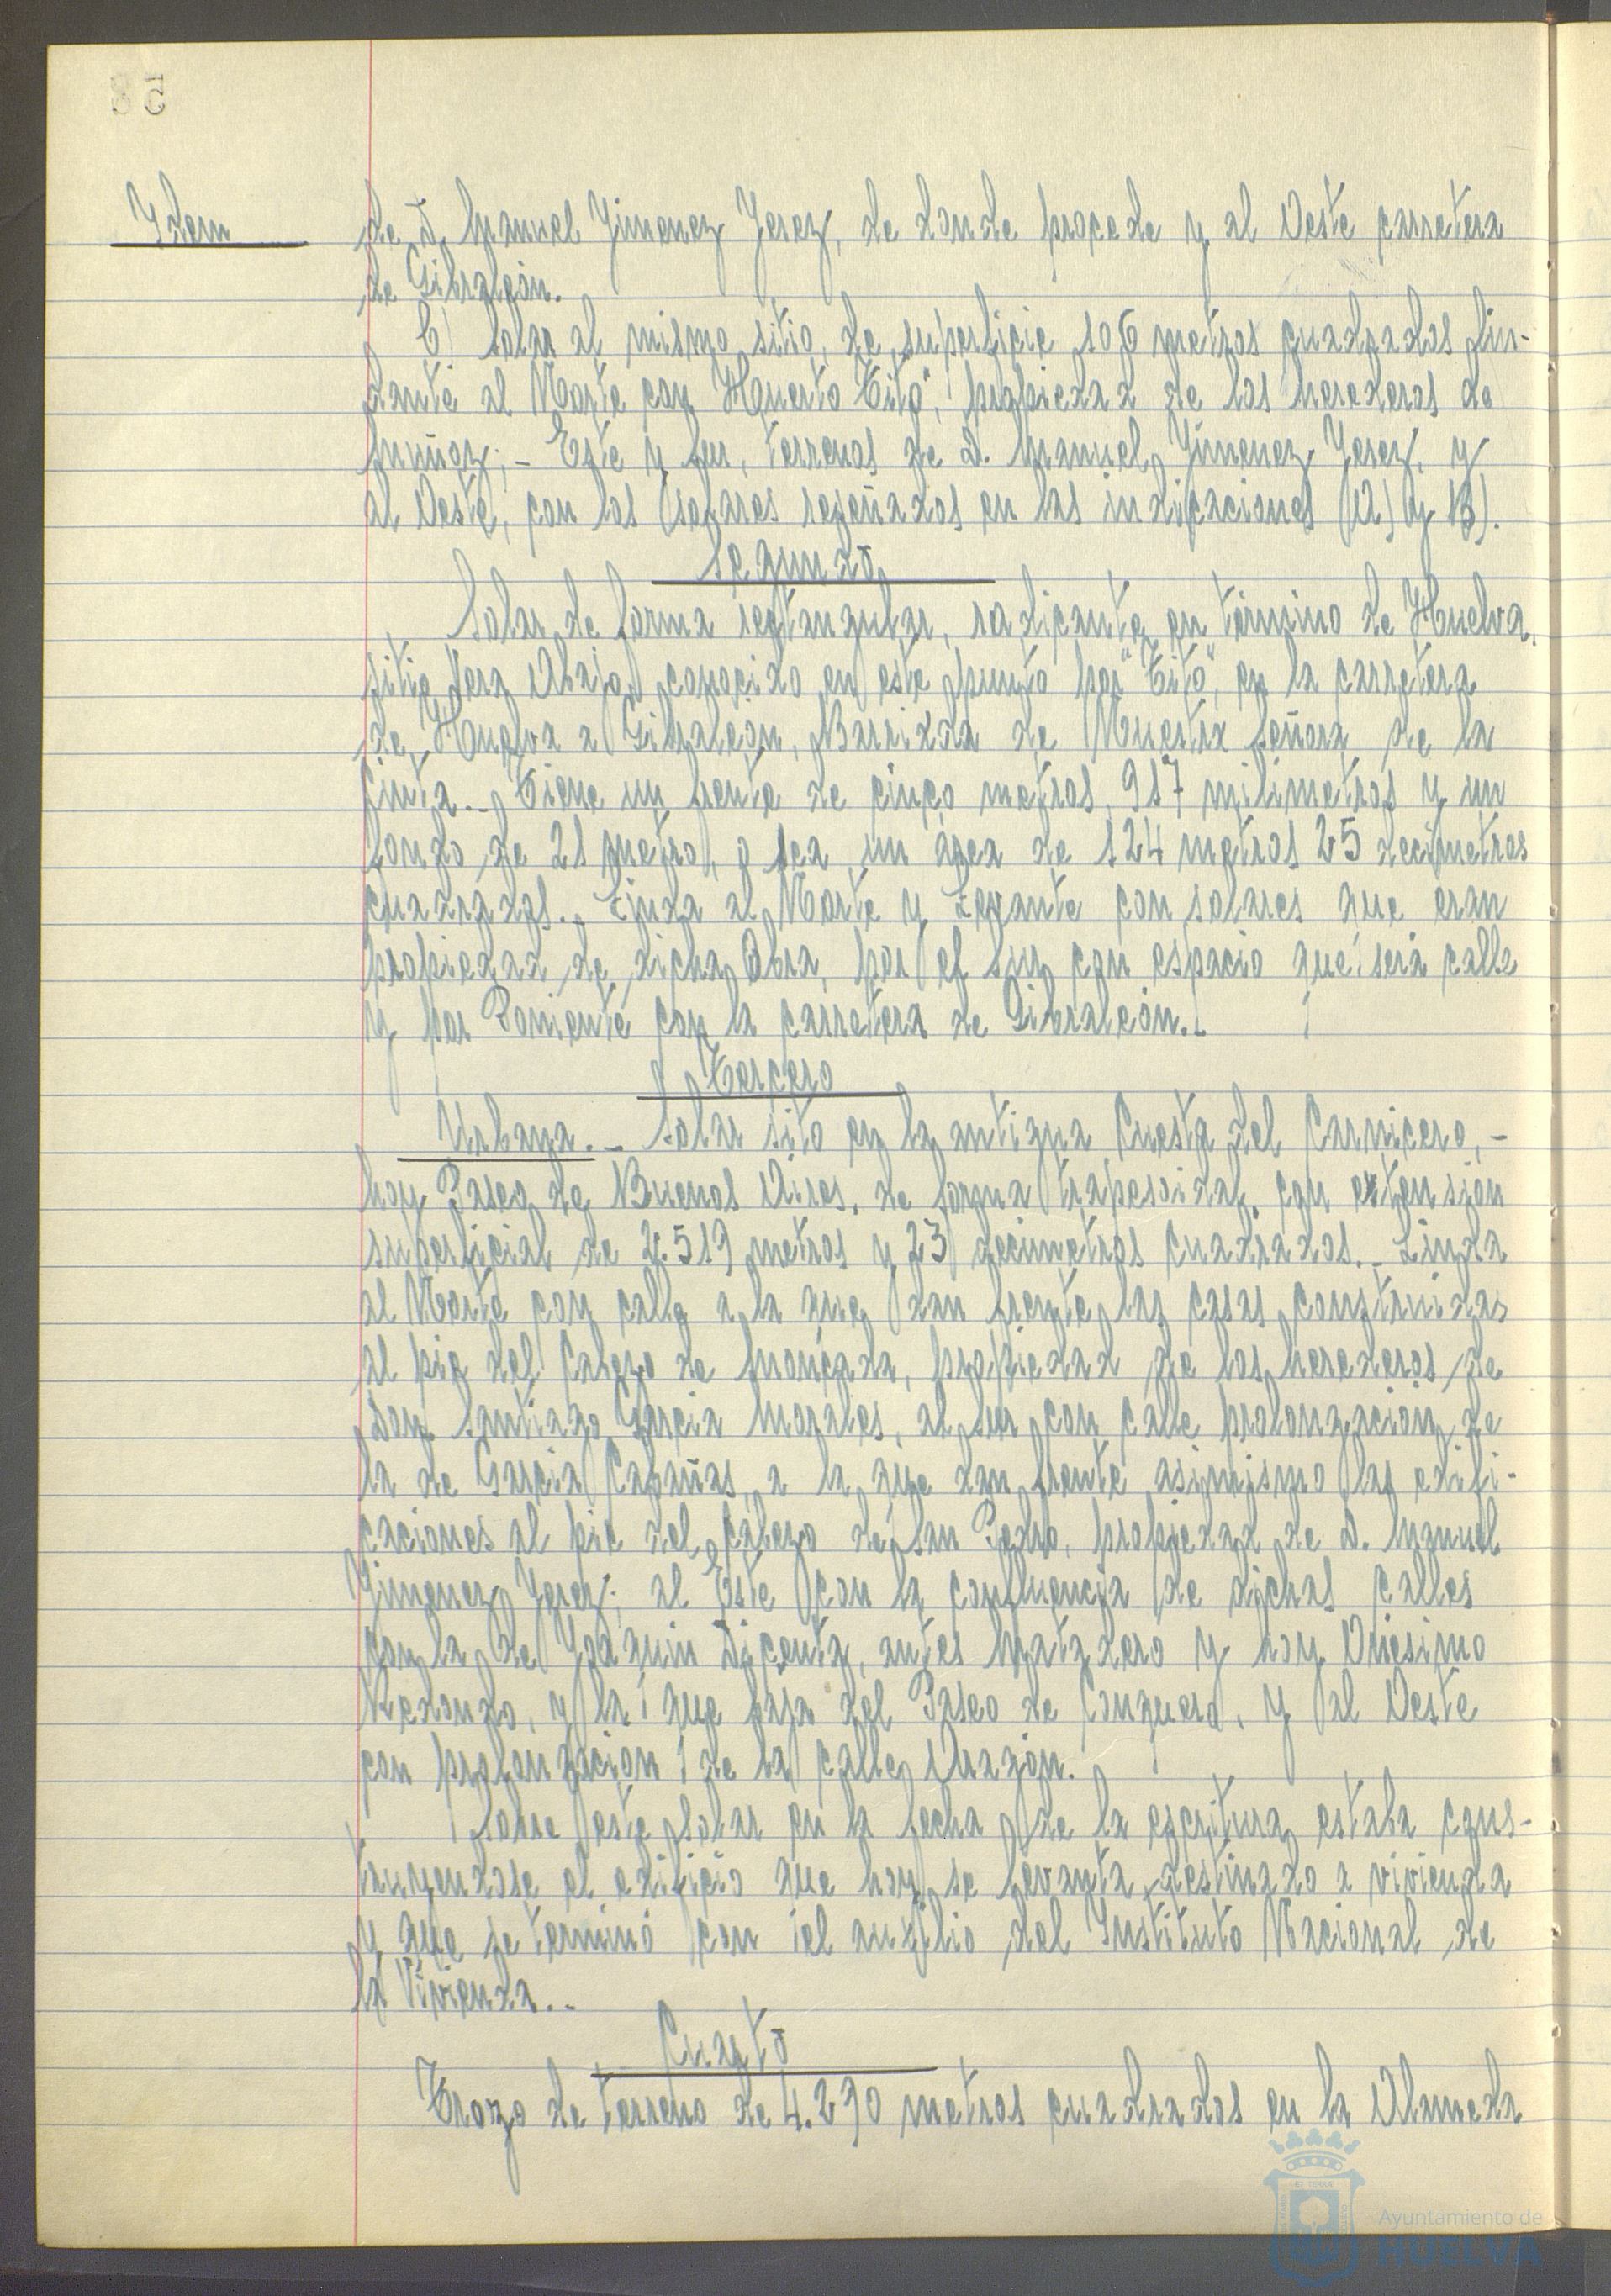 58
Idem
de D. Manuel Jimenez Jerez, de donde procede y al Oeste carretera
de Gibraleón.
C) Solar al mismo sitio, de superficie 106 metros cuadrados lin-
dante al Norte con "Huerto Tito", propiedad de los herederos de
Muñoz; - Este y Sur, terrenos de D. Manuel Jimenez Jerez, y
al Oeste, con los solares reseñados en las indicaciones (A) y B).
Segundo
Solar de forma rectangular, radicante en término de Huelva,
sitio Vera Abajo, conocido en este punto por "Tito", en la carretera
de Huelva a Gibraleón, Barriada de Nuestra Señora de la
Cinta.- Tiene un frente de cinco metros, 917 milimetros y un
fondo de 21 metro, o sea un área de 124 metros 25 decimetros
cuadrados.- Linda al Norte y Levante con solares que eran
propiedad de dicha Obra, por el Sur con espacio que será calle
y por Poniente con la carretera de Gibraleón.-
Tercero
Urbana.- Solar sito en la antigua Cuesta del Carnicero,-
hoy Paseo de Buenos Aires, de forma trapesoidal, con extension
superficial de 2.519 metros y 23 decimetros cuadrados.- Linda
al Norte con calle a la que dan frente las casas construidas
al pie del Cabezo de Moncada, propiedad de los herederos de
Don Santiago Garcia Morales, al Sur con calle prolongacion de
la de Garcia Cabañas, a la que dan frente asimismo las edifi-
caciones al pie del cabezo de San Pedro, propiedad de D. Manuel
Jimenez Jerez; al Este con la confluencia de dichas calles
con la de Joaquin Dicenta, antes Matadero y hoy Onesimo
Redondo, y la que baja del Paseo de Conquero, y al Oeste
con prolongacion de la calle Aragón.
Sobre este solar en la fecha de la escritura estaba cons-
truyendose el edificio que hoy se levanta destinado a vivienda
y que se terminó con el auxilio del Instituto Nacional de
la Vivienda.-
Cuarto
Trozo de terreno de 4.290 metros cuadrados en la Alameda
Ayuntamiento de
HUELVA